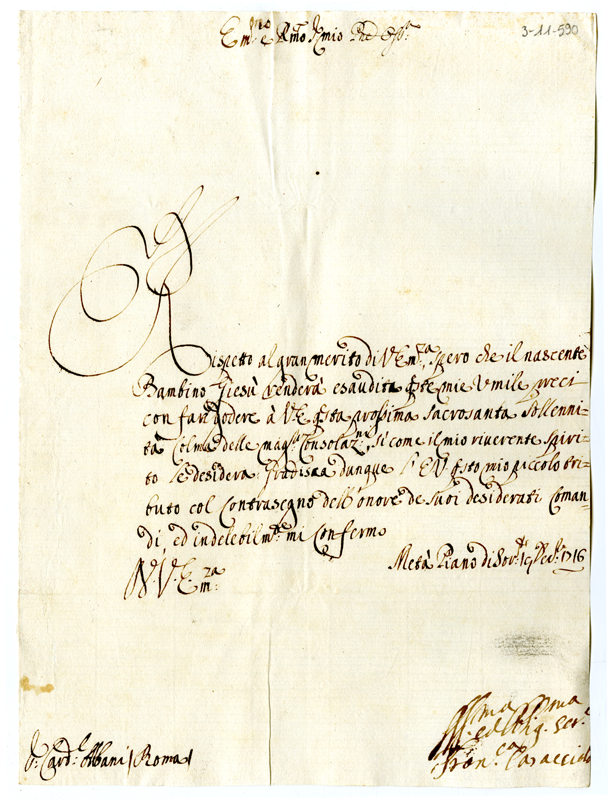 Em.mo e R.mo Sig.
3-11-590
Rispetto al gran merito di V Em.za, spero che il nascente
Bambino Giesù renderà esaudite q.ste mie Umile preci
con far godere à V E q.sta prossima Sacrosanta Sollenni-
tà Colma delle magg.ri Consolaz.ni, si come il mio riverente Spiri-
to le desidera. Gradisca dunque l'E V q.sto mio piccolo tri-
buto col Contrasegno dell'onore de suoi desiderati Coman-
di, ed indelebilm.te mi Confermo
Meta Piano di Sor.to 1716
V. E.za
Card.le Albani / Roma /
Ser.
Fran.ca Caracciolo